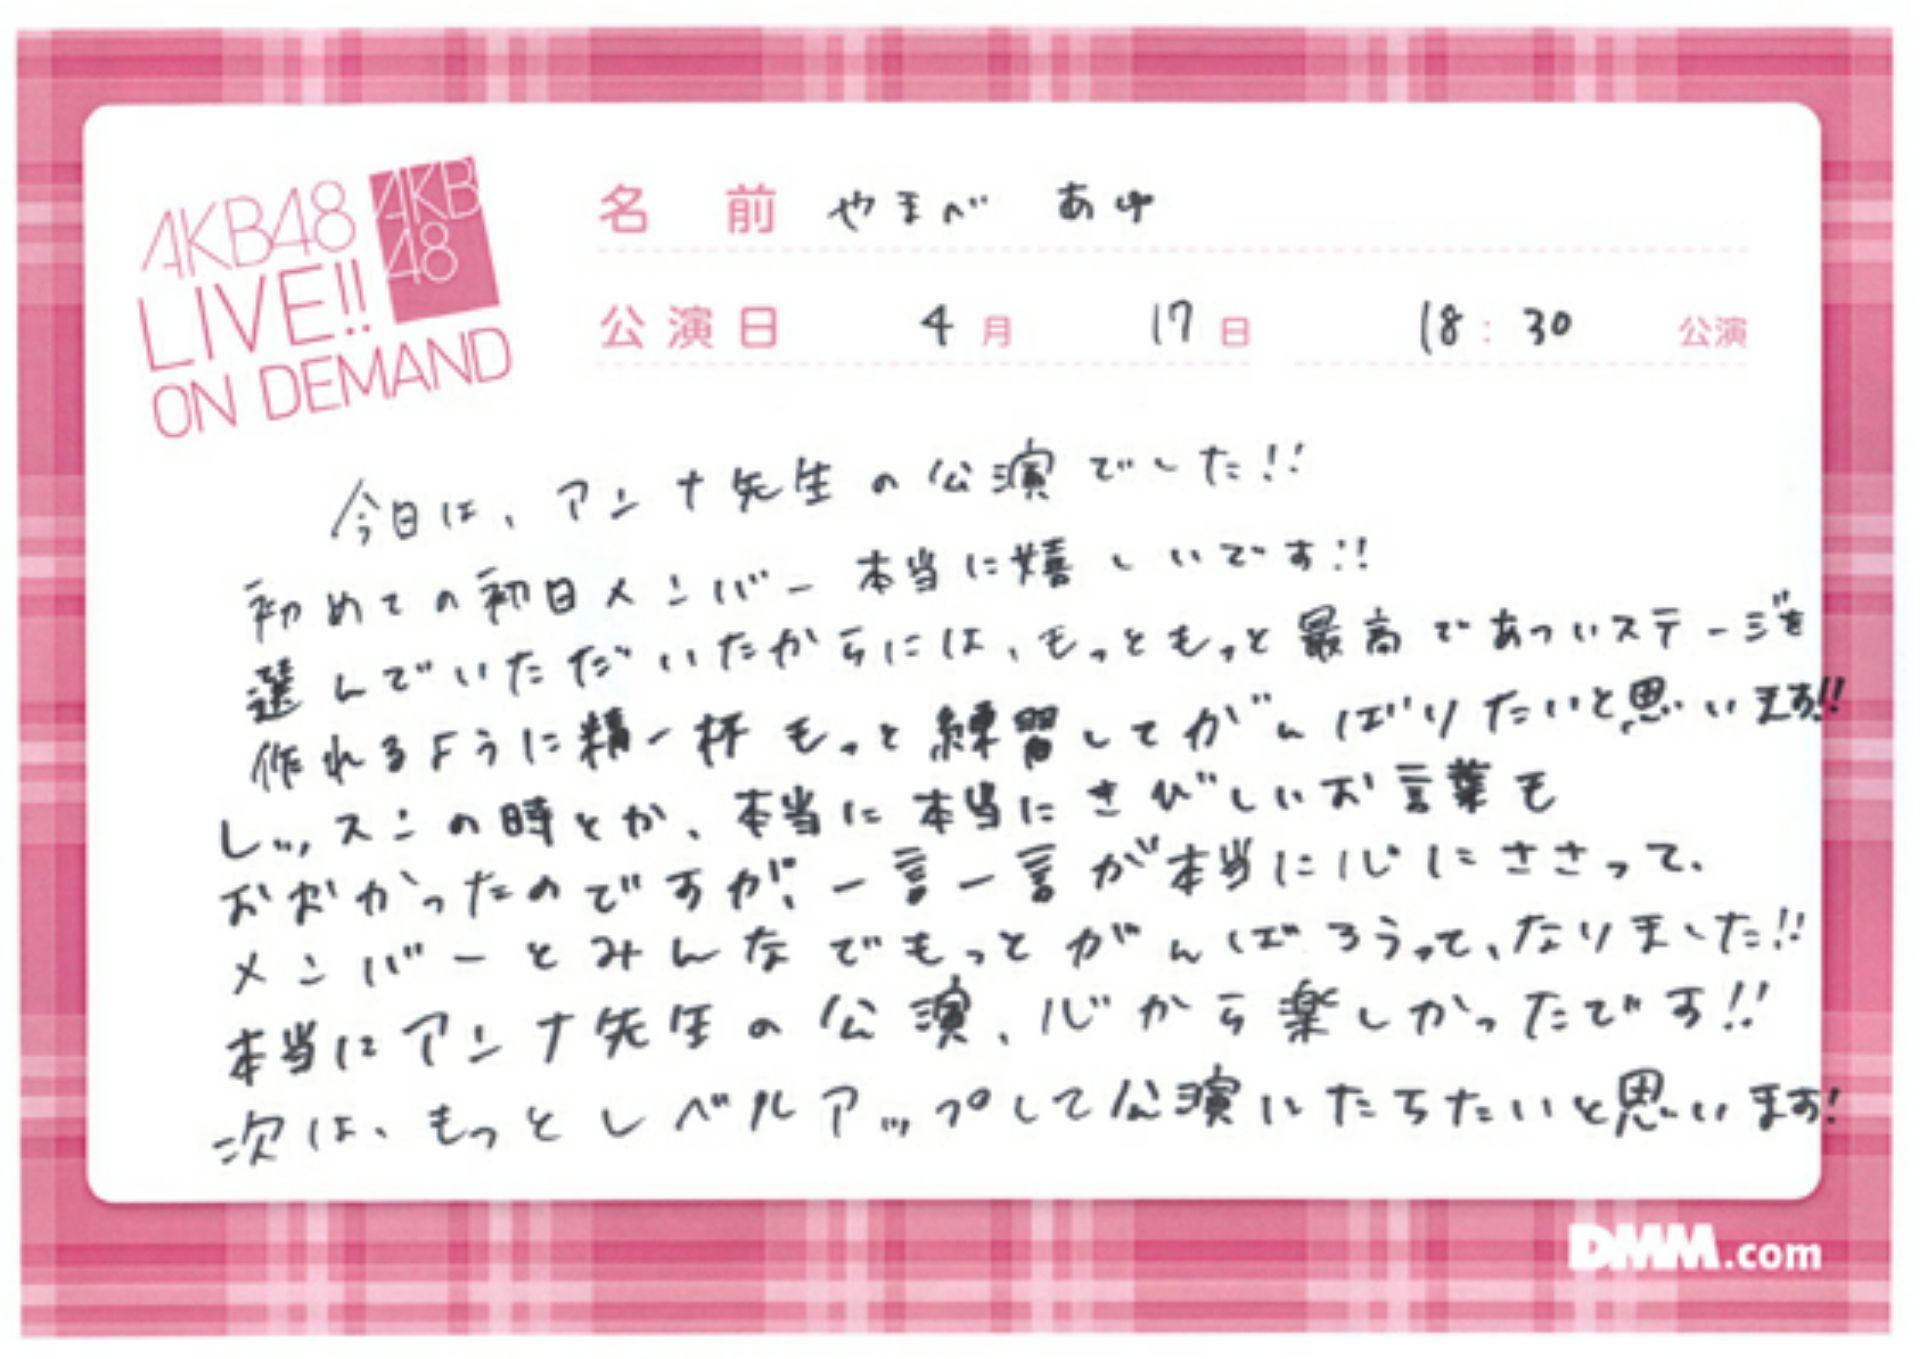 AKB48
LIVE!!
ON DEMAND
AKB
48
名前 やまべ あゆ
公演日 4月 17日 18:30 公演
今日は、アンナ先生の公演でした!!
初めての初日メンバー本当に嬉しいです!!
選んでいただいたからには、もっともっと最高であついステージを
作れるように精一杯もっと練習してがんばりたいと思います!!
レッスンの時とか、本当に本当にきびしいお言葉も
おおかったのですが、一言一言が本当に心にささって、
メンバーとみんなでもっとがんばろうって、なりました!!
本当にアンナ先生の公演、心から楽しかったです!!
次は、もっとレベルアップして公演にたちたいと思います!
DMM.com